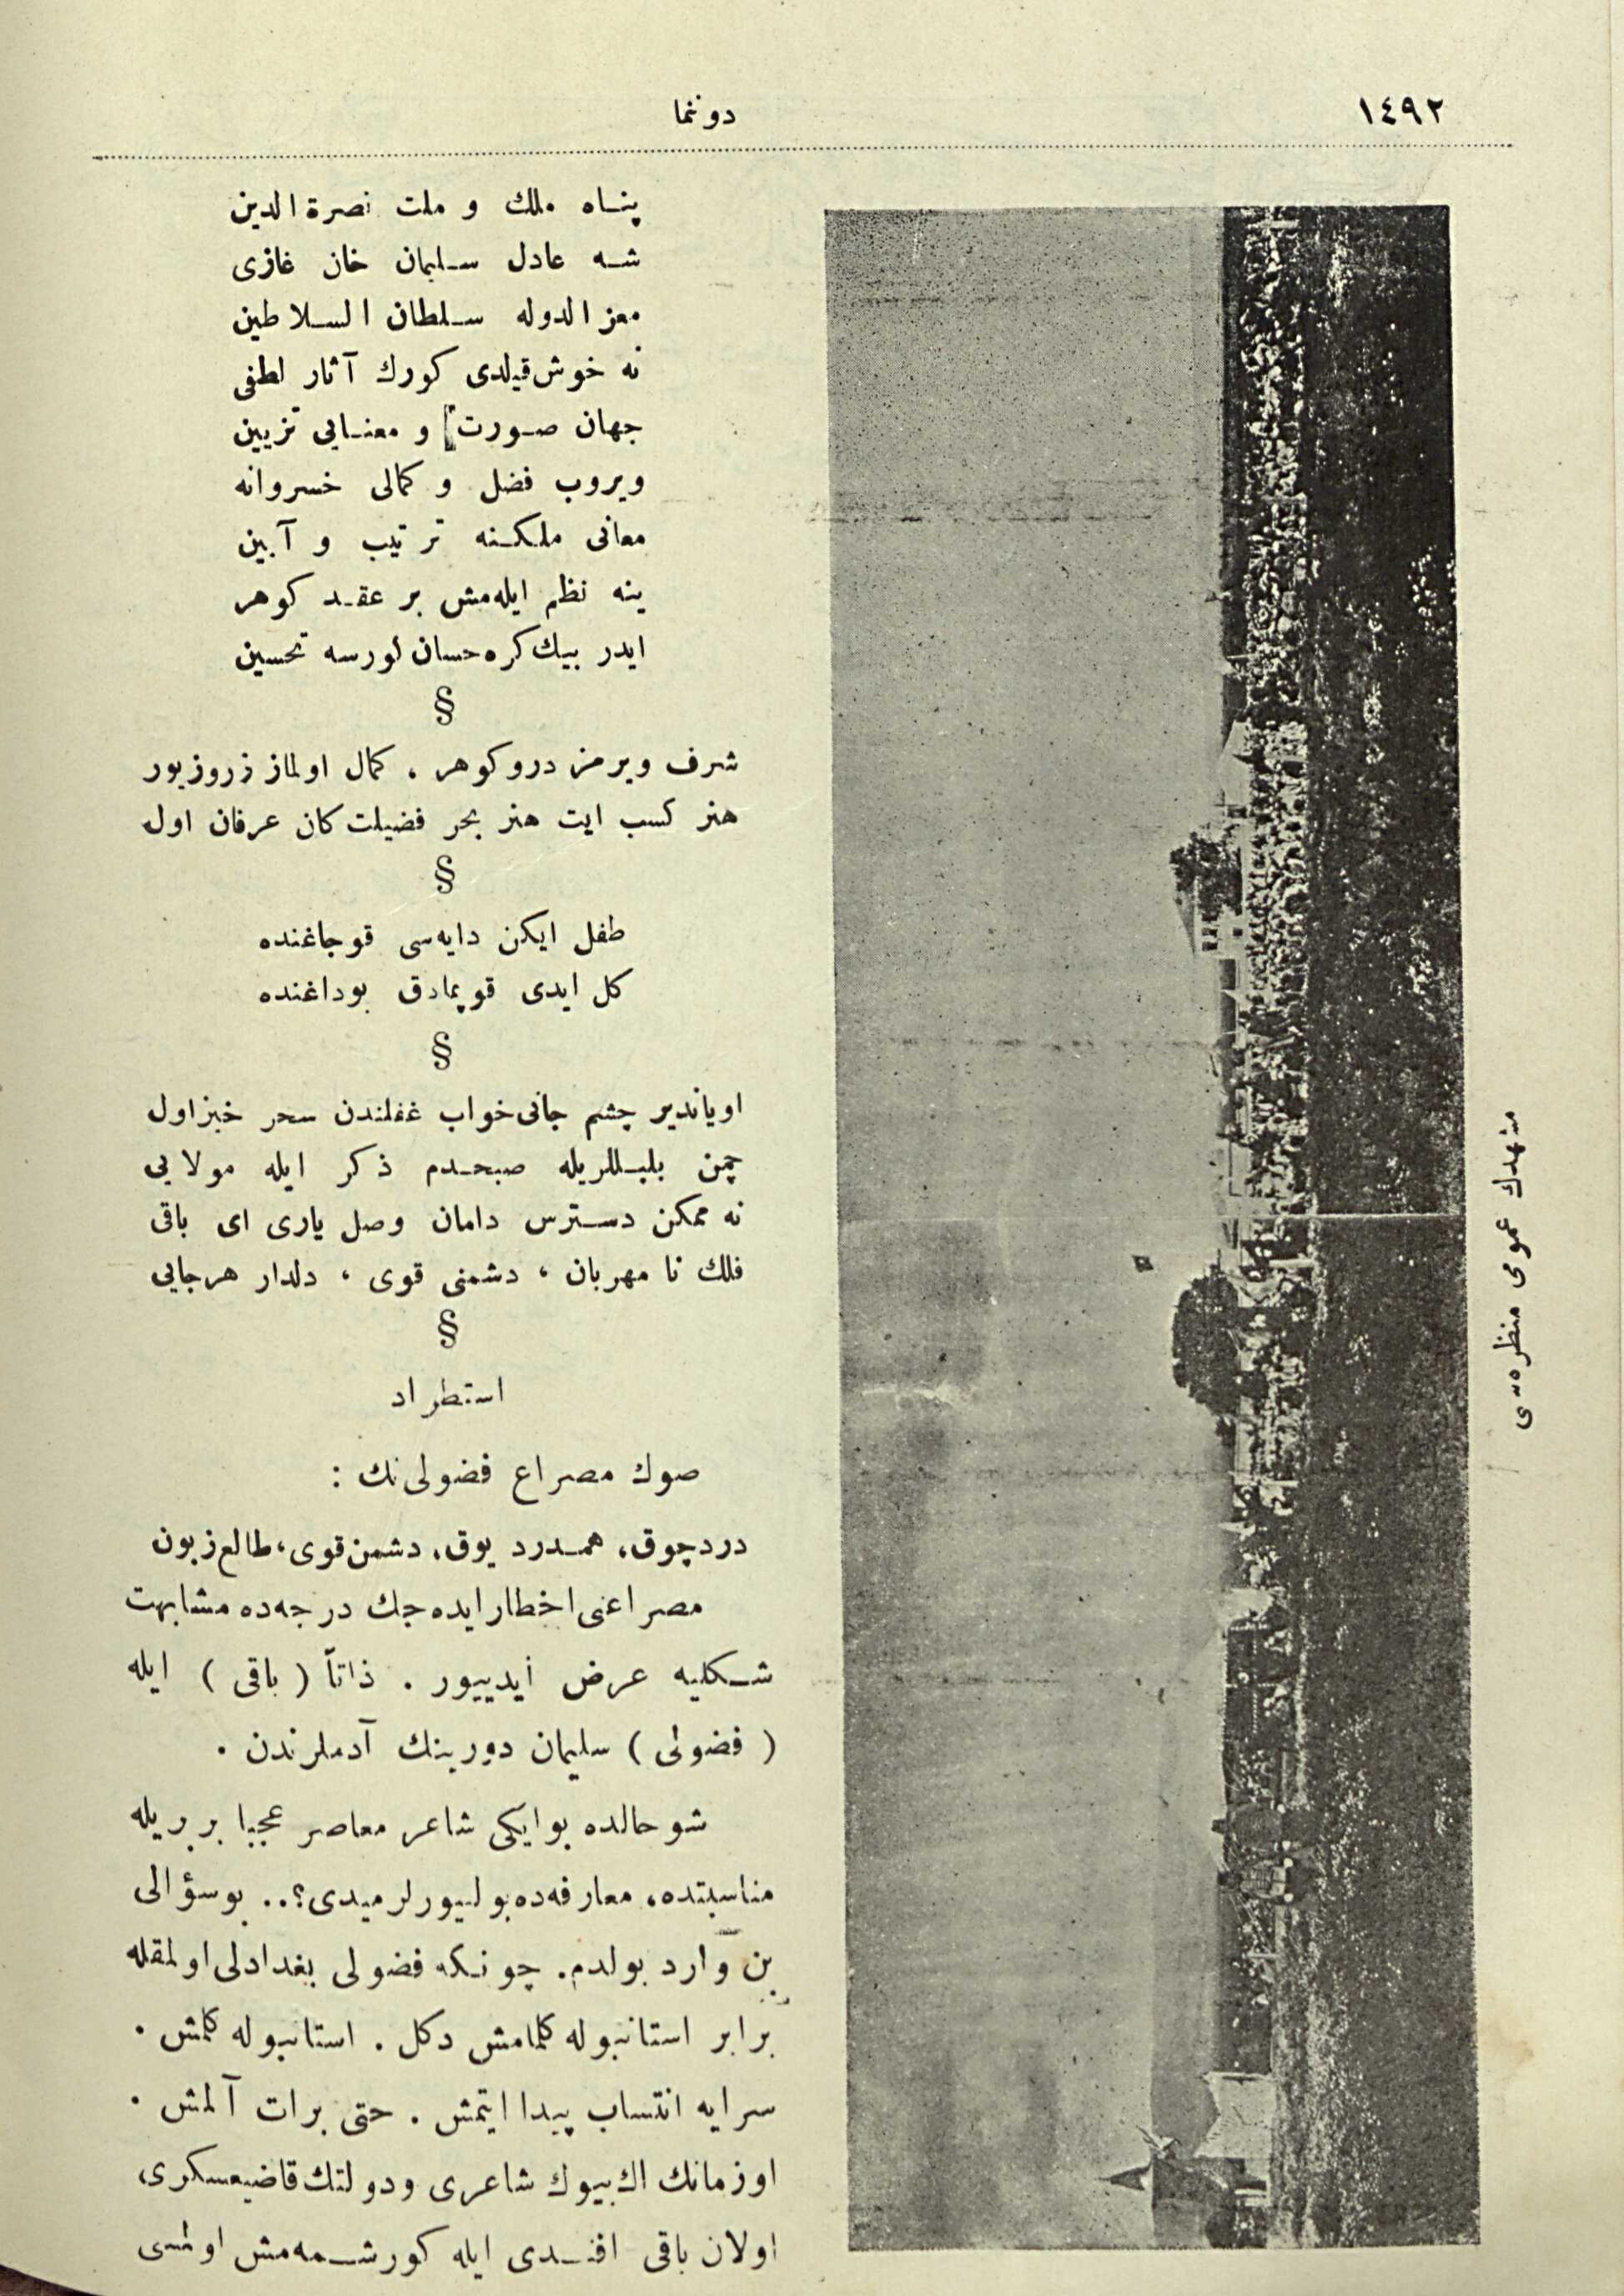 ١٤٩٢
دوننما
پناه ملك و ملت نصرة الدين
شه عادل سليمان خان غازى
معز الدوله سلطان السلاطين
نه خوش قيلدى كورك آثار لطفى
جهان صورت و معنايى تزيين
ويروب فضل و كمالى خسروانه
معانى ملكنه ترتيب و آيين
ينه نظم ايله‌مش بر عقد كوهر
ايدر بيك كره حسان اورسه تحسين
§
شرف ويرمز در و كوهر ، كمال اولماز زر و زيور
هنر كسب ايت هنر بحر فضيلت كان عرفان اول
§
طفل ايكن دايه‌سى قوجاغنده
كل ايدى قوپمادق بوداغنده
§
اوياندير چشم جانى خواب غفلتدن سحر خيز اول
چمن بلبللريله صبحدم ذكر ايله مولايى
نه ممكن دسترس دامان وصل يارى اى باقى
فلك نا مهربان ، دشمنى قوى ، دلدار هرجايى
§
استطراد
صوك مصراع فضولى‌نك :
درد چوق، همدرد يوق، دشمن قوى، طالع زبون
مصراعنى اخطار ايده‌جك درجه‌ده مشابهت
شكليه عرض ايدييور . ذاتاً ( باقى ) ايله
( فضولى ) سليمان دورينك آدملرندن .
شو حالده بو ايكى شاعر معاصر عجبا بربريله
مناسبتده، معارفه‌ده بولنيورلرميدى؟.. بوسؤالى
بن وارد بولدم. چونكه فضولى بغدادلى اولمقله
برابر استانبوله كلمامش دكل . استانبوله كلمش .
سرايه انتساب پيدا ايتمش . حتى برات آلمش .
اوزمانك اك بيوك شاعرى و دولتك قاضيعسكرى،
اولان باقى افندى ايله كورشمه‌مش اولمسى
مشهدك عمومى منظره‌سى